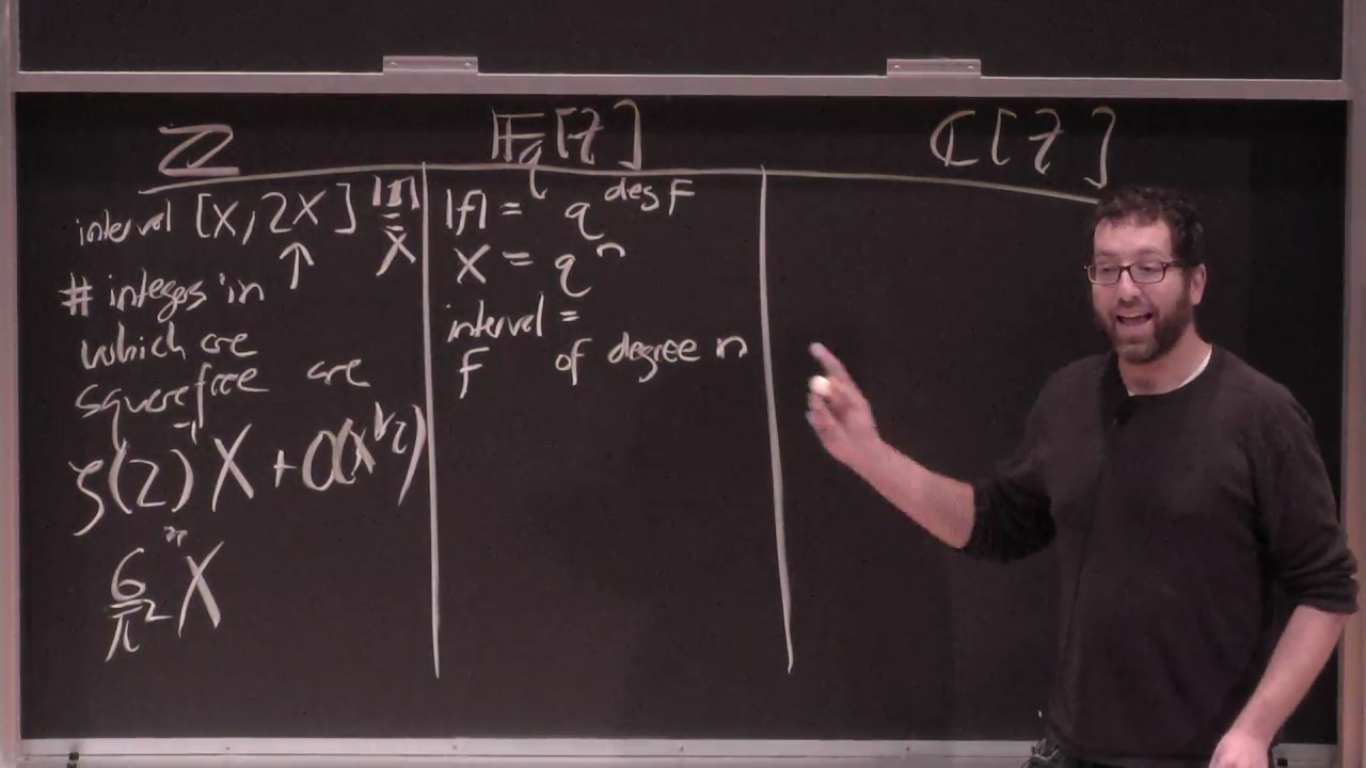 ℤ
interval [X, 2X] |I| = X
# integers in ↑
which are
squarefree are
ζ(2)⁻¹ X + O(X^{1/2})
6/π² X
𝔽_q[t]
|f| = q^{deg F}
X = q^n
interval =
F of degree n
ℂ[t]